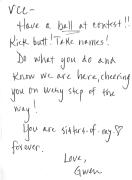 VCC-
Have a ball at contest!!
Kick butt! Take names!
Do what you do and
know we are here, cheering
you on every step of the
way!
You are sisters-of-my-♡
forever.
Love,
Gwen